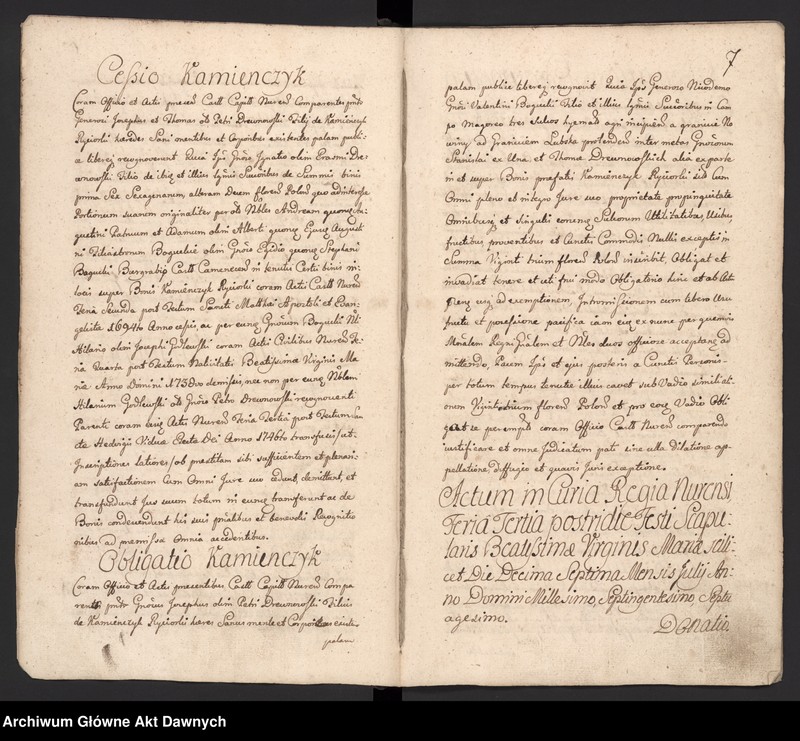 Cessio Kamienczyk
Coram Officio et Actis praesen Castr Capitl Nuren Comparentes prnt
Generosi Josephus et Thomas olt Petri Drewnowski Filij de Kamienczyk
Ryciorki haeredes Sani mentibus et Corporibus existentes palam publi-
ce liberq recognoverunt Quia Ipsi Gnoso Ignatio olim Erasmi Dre-
wnowski Filio de ibiq et illius lgtmis Succibus de Summis binis
prima Sex Sexagenarum, altera Decem floren Polon quo ad interesse
Portionum suarum originaliter per olt Nbles Andream quonq Au-
gustini Patruum et Adamum olim Alberti quonq Ejusq August
ni Filiastrorum Boguckie olim Gnoso Egidio quonq Stephani
Bagucki Burgrabio Castr Camenecen in tenutis Certis binis in
locis super Bonis Kamienczyk Ryciorki coram Actis Castr Nuren
Feria Secunda post Festum Sancti Matthaei Apostoli et Evan-
gelistae 1694to Anno cessis, ac per eunq Gnosum Bogucki Nli
Hilario olim Josephi Godlewski coram Actis Civilibus Nuren Fe-
ria Quarta post Festum Nativitatis Beatissimae Virginis Ma-
riae Anno Domini demissis, nec non per eunq Nblem
Hilarium Godlewski olt Gnoso Petro Drewnowski recognoventi
Parenti coram Actis Nuren Feria Tertia post Festum San
tae Hedvigis Viduae Electae Dei Anno 1746to transfusis/ut
Inscriptiones latiores/ob praestitam sibi sufficientem et plenari-
am satisfactionem Cum Omni Jure suo cedunt, demittunt, et
transfundunt Jus suum totum in eunq transferunt ac de
Bonis condescendunt his suis pntibus et benevolis Recognitio
nibus ad praemissa Omnia accedentibus.
Obligatio Kamienczyk
Coram Officio et Actis praesentibus Castr Capitl Nuren Compa
rens prnt Gnosus Josephus olim Petri Drewnowski Filius
de Kamienczyk Ryciorki haeres Sanus mente et Corpore existen
palam
7
palam publice libereq recognovit Quia Ipse Generoso Nicodemo
Gnosi Valentini Bogucki Filio et illius lgtmis Succibus in Cam
po Majoreo tres Sulcos hyemales agri incipien a granicie No
winy ad Graniciem Lubska protenden inter metas Gnosorum
Stanislai ex una et Thomae Drewnowskich alia ex parte
in et super Bonis praefatis Kamienczyk Ryciorki sitis Cum
Omni pleno et integro Jure suo proprietate propinquitate
Omnibusq et singulis eorunq Sulcorum Utilitatibus, Usibus
fructibus proventibus et Cunctis Commodis Nullis exceptis in
Summa Viginti trium floren Polon inscribit, Obligat et
invadiat tenere et uti frui modo Obligatorio hinc et ab Act
Prenq usq ad exemptionem, Intromissionem cum libero Usu
fructu et possessione pacifica jam eiq ex nunc per quemvis
Mrialem Regni Gnalem et Nbles duos officiose acceptanq ad
mittendo, Quem Ipse et ejus posteri a Cunctis Personis
per totum tempus tenutae illius cavet sub Vadio simili ati-
onem Viginti trium floren Polon et pro eoq Vadio Obli
gat se perempt coram Officio Castr Nuren comparendo
justificare et omne Judicatum pati sine ulla dilatione ap-
pellatione, diffugio et quavis Juris exceptione.
Actum in Curia Regia Nurensi,
Feria Tertia postridie Festi Scapu-
laris Beatissimae Virginis Mariae scili-
cet Die Decima Septima Mensis Julij An-
no Domini Millesimo, Septingentesimo Septu
agesimo.
Donatio
Archiwum Główne Akt Dawnych